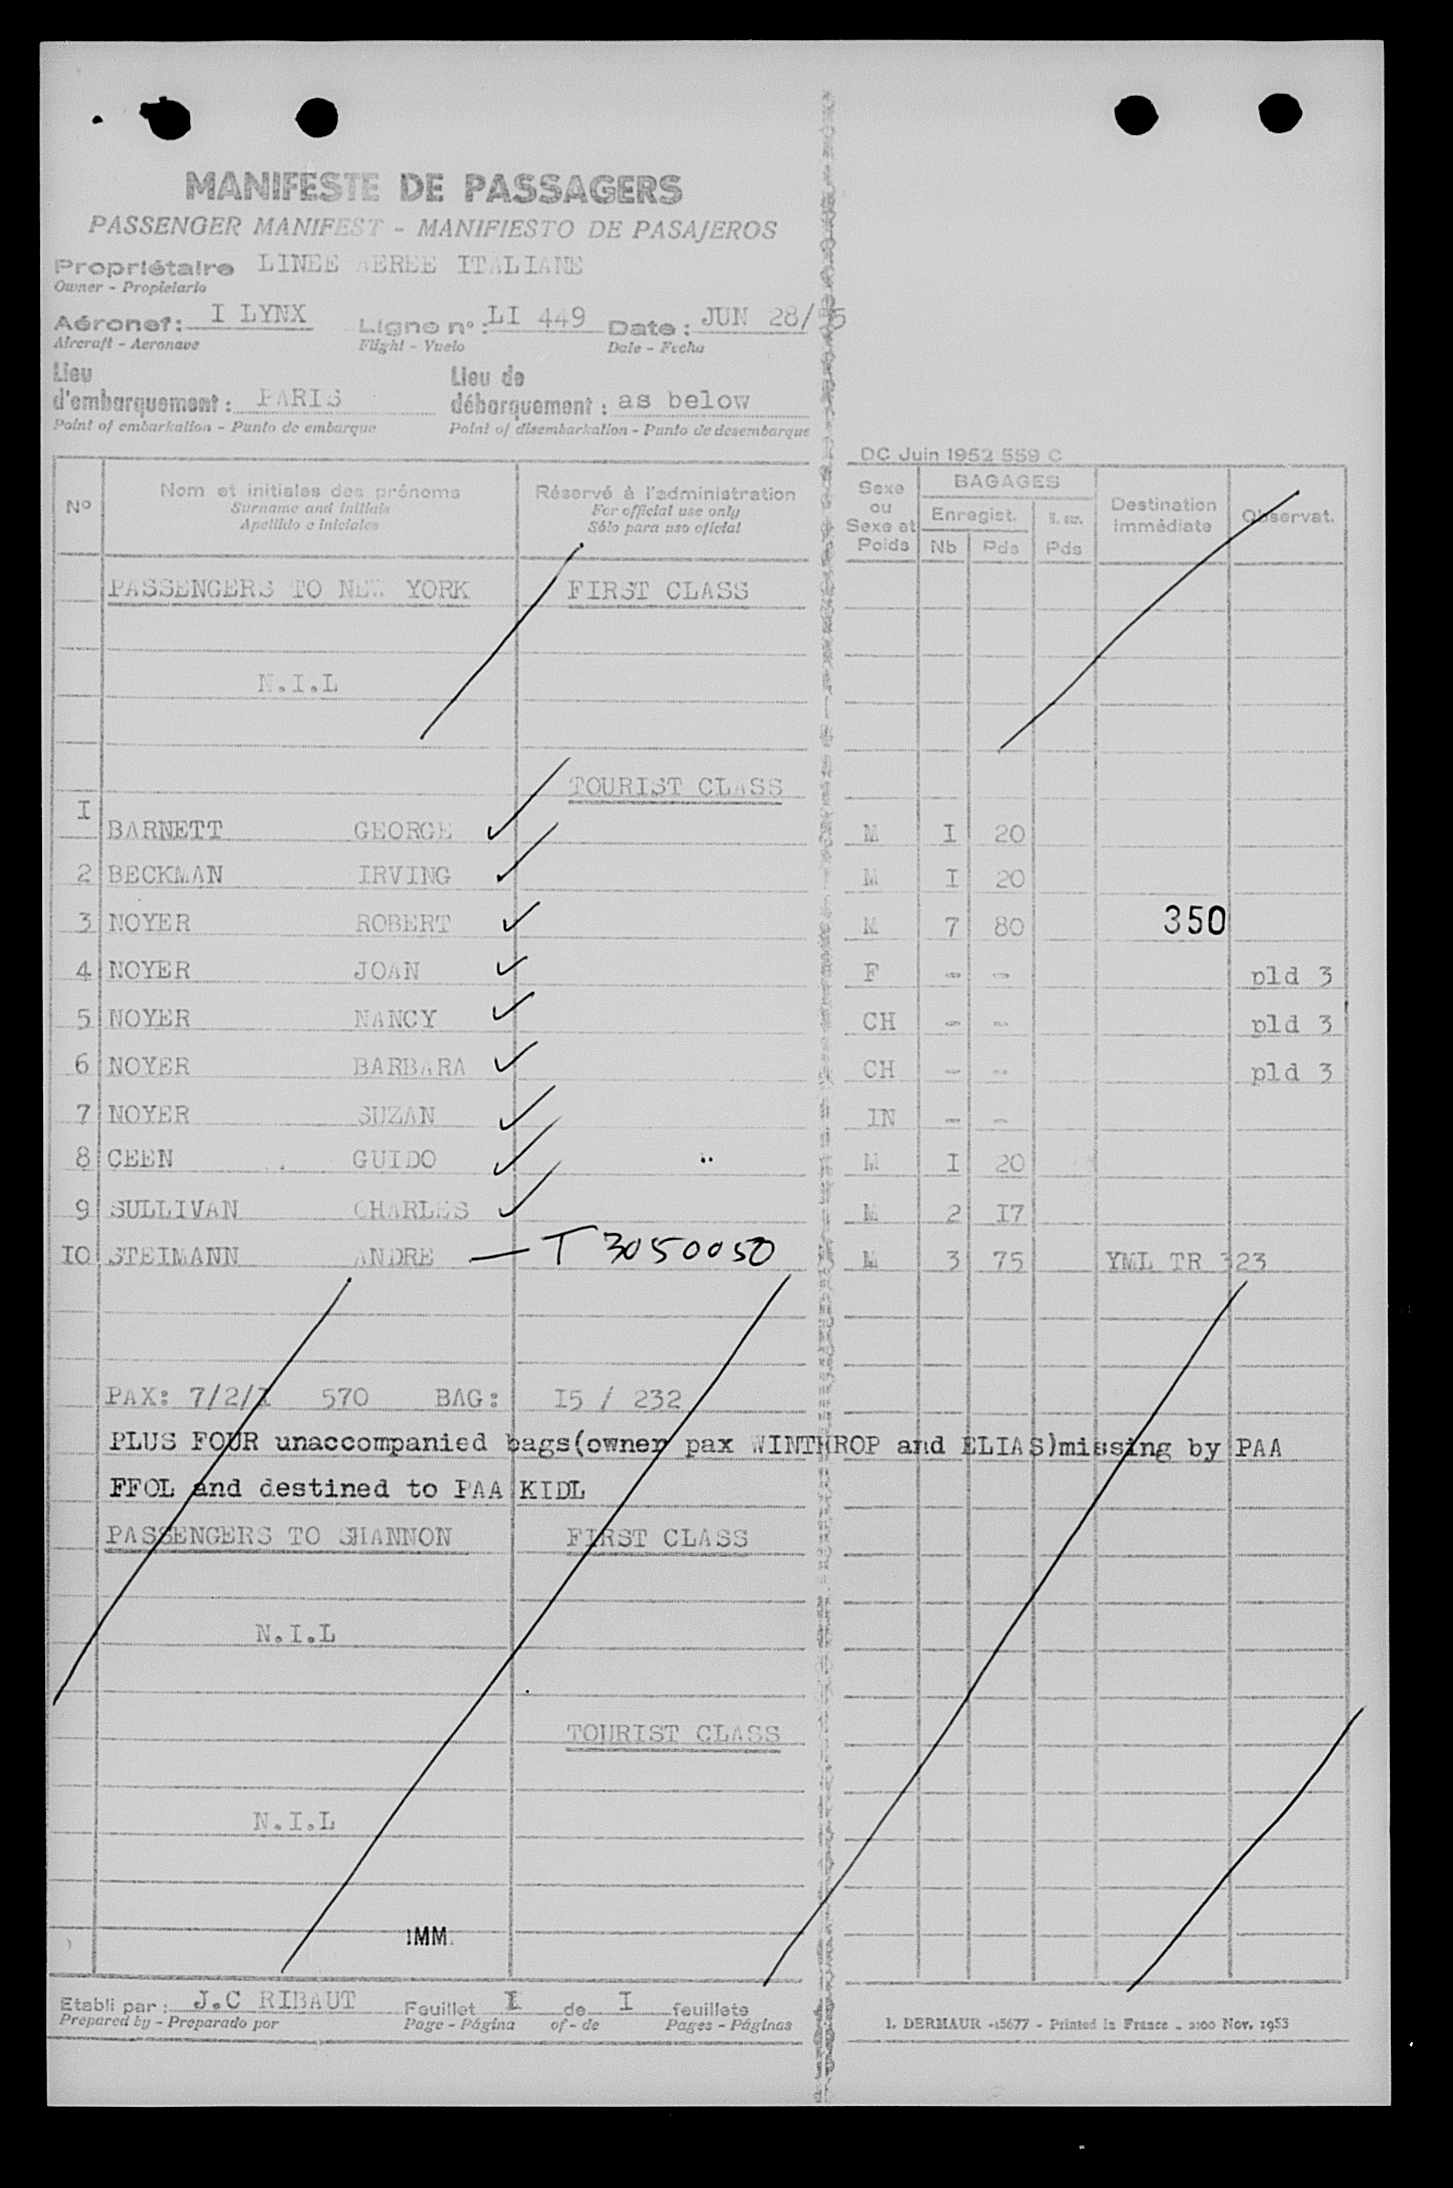 MANIFESTE DE PASSAGERS
PASSENGER MANIFEST - MANIFIESTO DE PASAJEROS
Propriétaire LINEE AEREE ITALIANE
Owner - Propietario
Aéronef: I LYNX Ligne n°: LI 449 Date: JUN 28/55
Aircraft - Aeronave Flight - Vuelo Date - Fecha
Lieu d'embarquement: PARIS Lieu de débarquement: as below
Point of embarkation - Punto de embarque Point of disembarkation - Punto de desembarque
DC Juin 1952 559 C
Nº Nom et initiales des prénoms Réservé à l'administration Sexe ou Sexe et Poids BAGAGES Destination immédiate Observat.
Surname and initials For official use only Enregist.
Apellido e iniciales Sólo para uso oficial Nb Pds Pds
PASSENGERS TO NEW YORK FIRST CLASS
N.I.L
TOURIST CLASS
I BARNETT GEORGE M I 20
2 BECKMAN IRVING M I 20
3 NOYER ROBERT M 7 80 350
4 NOYER JOAN F - - pld 3
5 NOYER NANCY CH - - pld 3
6 NOYER BARBARA CH - - pld 3
7 NOYER SUZAN IN - -
8 CEEN GUIDO M I 20
9 SULLIVAN CHARLES M 2 I7
IO STEIMANN ANDRE — T 3050050 M 3 75 YML TR 323
PAX: 7/2/I 570 BAG: I5 / 232
PLUS FOUR unaccompanied bags(owner pax WINTHROP and ELIAS)missing by PAA
FFOL and destined to PAA KIDL
PASSENGERS TO SHANNON FIRST CLASS
N.I.L
TOURIST CLASS
N.I.L
IMM.
Etabli par: J.C RIBAUT Feuillet I de I feuillets
Prepared by - Preparado por Page - Página of - de Pages - Páginas
I. DERMAUR -15677 - Printed in France - 2100 Nov. 1953